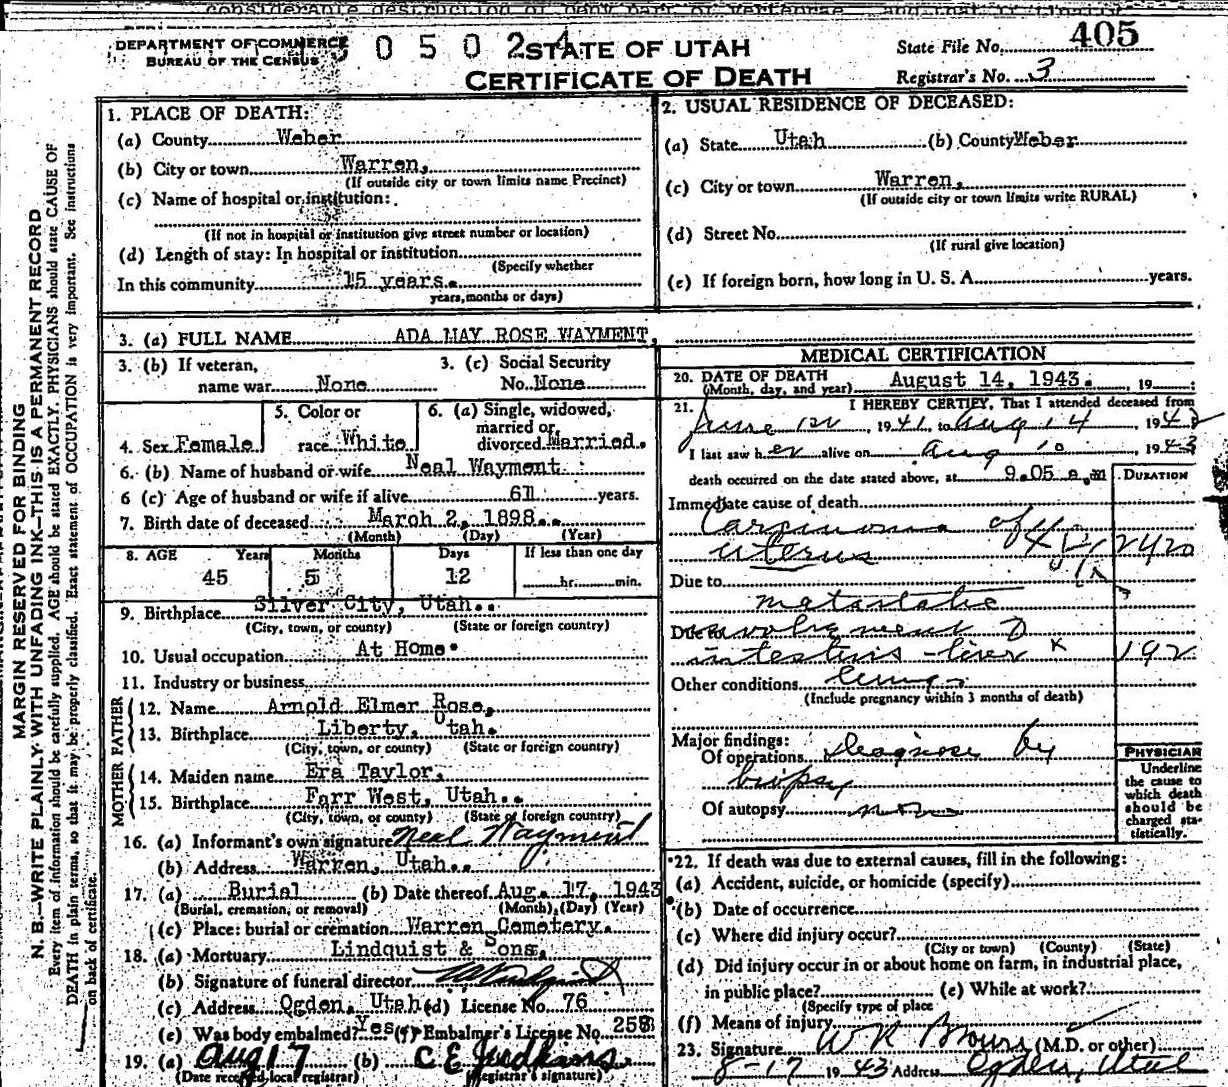 considerable destruction of body part of vertebrae and that
DEPARTMENT OF COMMERCE
BUREAU OF THE CENSUS
0 5 0 2 4
STATE OF UTAH
CERTIFICATE OF DEATH
State File No. 405
Registrar's No. 3
1. PLACE OF DEATH:
(a) County Weber
(b) City or town Warren,
(If outside city or town limits name Precinct)
(c) Name of hospital or institution:
(If not in hospital or institution give street number or location)
(d) Length of stay: In hospital or institution
(Specify whether
In this community 15 years.
years, months or days)
2. USUAL RESIDENCE OF DECEASED:
(a) State Utah (b) County Weber
(c) City or town Warren,
(If outside city or town limits write RURAL)
(d) Street No.
(If rural give location)
(e) If foreign born, how long in U. S. A. years.
3. (a) FULL NAME ADA MAY ROSE WAYMENT,
3. (b) If veteran, name war None
3. (c) Social Security No. None
4. Sex Female
5. Color or race White
6. (a) Single, widowed, married or divorced Married.
6. (b) Name of husband or wife Neal Wayment
6 (c) Age of husband or wife if alive 61 years.
7. Birth date of deceased March 2, 1898..
(Month) (Day) (Year)
8. AGE Years Months Days If less than one day
45 5 12 hr. min.
9. Birthplace Silver City, Utah..
(City, town, or county) (State or foreign country)
10. Usual occupation At Home.
11. Industry or business
FATHER
12. Name Arnold Elmer Rose,
13. Birthplace Liberty, Utah.
(City, town, or county) (State or foreign country)
MOTHER
14. Maiden name Era Taylor,
15. Birthplace Farr West, Utah..
(City, town, or county) (State or foreign country)
16. (a) Informant's own signature Neal Wayment
(b) Address Warren, Utah..
17. (a) Burial (b) Date thereof Aug. 17, 1943
(Burial, cremation, or removal) (Month) (Day) (Year)
(c) Place: burial or cremation Warren Cemetery.
18. (a) Mortuary Lindquist & Sons,
(b) Signature of funeral director
(c) Address Ogden, Utah (d) License No. 76
(e) Was body embalmed? Yes (f) Embalmer's License No. 258
19. (a) Aug 17 (b) C E Judkins
(Date received local registrar) (Registrar's signature)
MEDICAL CERTIFICATION
20. DATE OF DEATH
(Month, day, and year) August 14, 1943. , 19
21. I HEREBY CERTIFY, That I attended deceased from
June 12, 1941, to Aug 14, 1943
I last saw her alive on Aug 10, 1943
death occurred on the date stated above, at 9.05 a.m
DURATION
Immediate cause of death
Carcinoma of
uterus
Due to
matastatic
Due to involvement
intestins - liver
Other conditions lungs
(Include pregnancy within 3 months of death)
Major findings:
Of operations Diagnose by
biopsy
Of autopsy none
PHYSICIAN
Underline
the cause to
which death
should be
charged sta-
tistically.
22. If death was due to external causes, fill in the following:
(a) Accident, suicide, or homicide (specify)
(b) Date of occurrence
(c) Where did injury occur?
(City or town) (County) (State)
(d) Did injury occur in or about home on farm, in industrial place,
in public place? (e) While at work?
(Specify type of place
(f) Means of injury
23. Signature W R Brown (M.D. or other)
8-17 1943 Address Ogden, Utah
MARGIN RESERVED FOR BINDING
N. B.—WRITE PLAINLY WITH UNFADING INK—THIS IS A PERMANENT RECORD
Every item of information should be carefully supplied. AGE should be stated EXACTLY. PHYSICIANS should state CAUSE OF
DEATH in plain terms, so that it may be properly classified. Exact statement of OCCUPATION is very important. See instructions
on back of certificate.